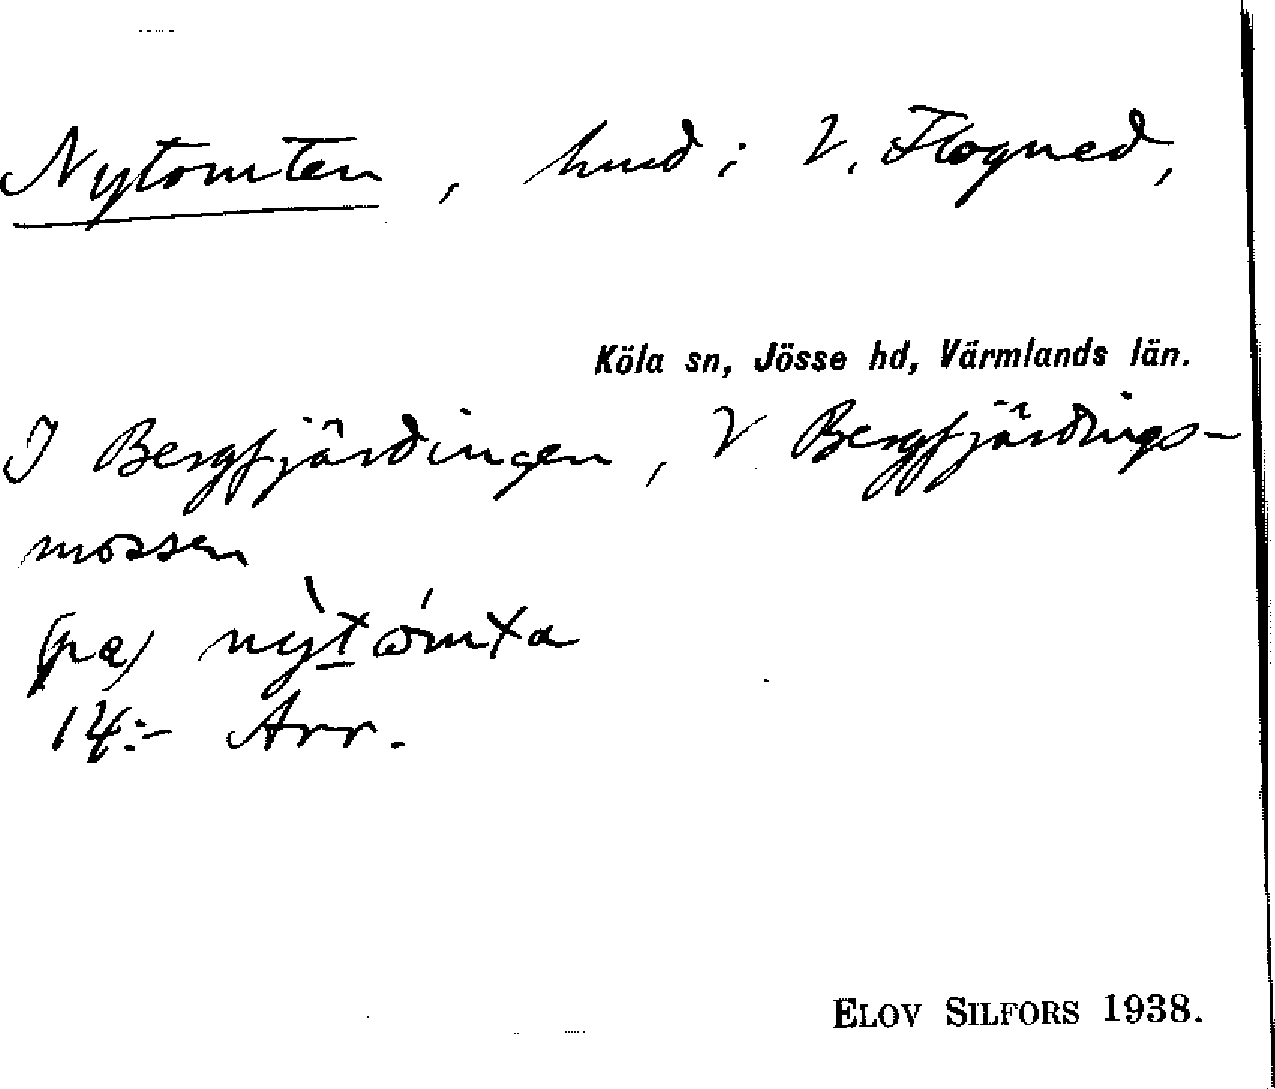 Nytomten, hmd i V. Flogned,
Köla sn, Jösse hd, Värmlands län.
I Bergfjärdingen, V Bergfjärdings-
mossen
(pa) nỳtómta
14:- Arr.
ELOV SILFORS 1938.